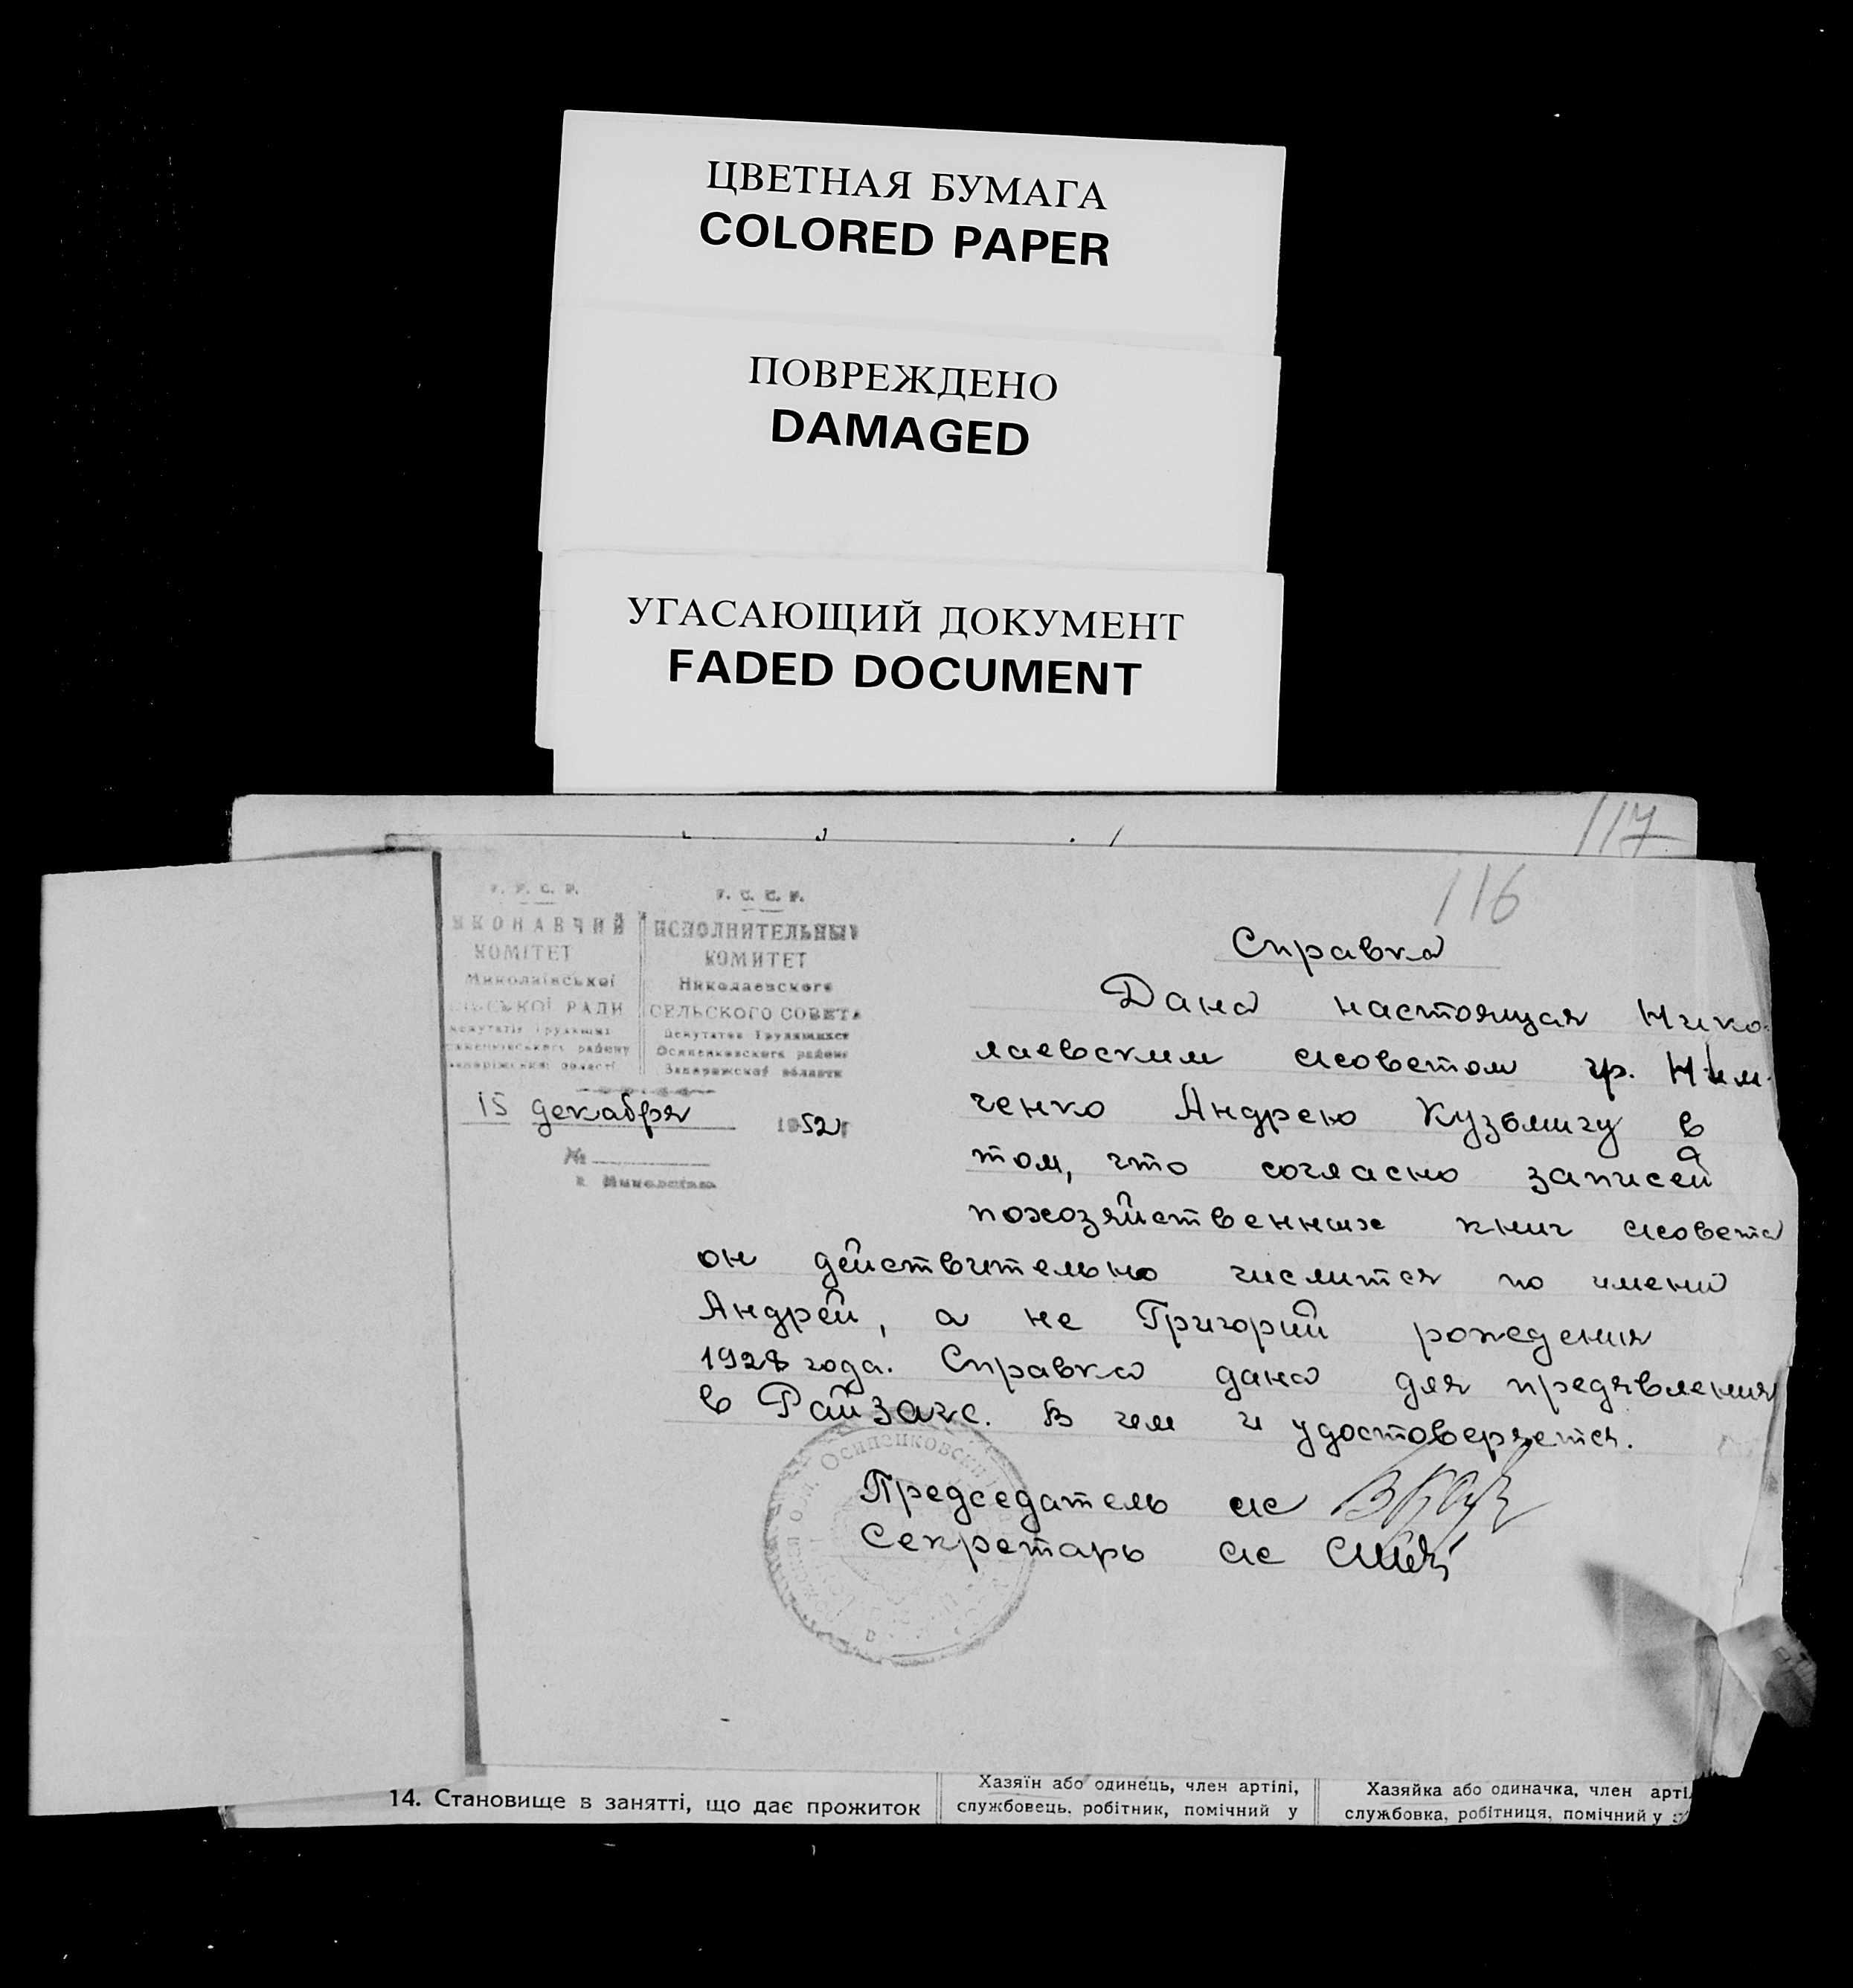 ЦВЕТНАЯ БУМАГА
COLORED PAPER
ПОВРЕЖДЕНО
DAMAGED
УГАСАЮЩИЙ ДОКУМЕНТ
FADED DOCUMENT
117
116
У. Р. С. Р.
ИКОНАВЧИЙ
КОМІТЕТ
Миколаївської
ІЛЬСЬКОЇ РАДИ
депутатів Трудящих
району
області
У. С. С. Р.
ИСПОЛНИТЕЛЬНЫЙ
КОМИТЕТ
Николаевского
СЕЛЬСКОГО СОВЕТА
Депутатов Трудящихся
Осипенковского района
Запорожской области
15 декабря 1952
№
Справка
Дана настоящая Нико-
лаевским с/советом гр. Ним-
ченко Андрею Кузьмичу в
том, что согласно записей
похозяйственных книг с/совета
он действительно числится по имени
Андрей, а не Григорий рождения
1928 года. Справка дана для предявления
в Райзагс. В чем и удостоверяется.
Председатель с/с
Секретарь с/с
Осипенковский
14. Становище в занятті, що дає прожиток
Хазяїн або одинець, член артілі,
службовець, робітник, помічний у
Хазяйка або одиначка, член арті
службовка, робітниця, помічний у